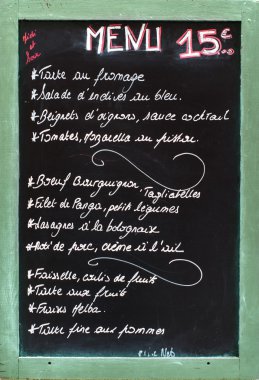 Midi et Soir
MENU 15€
*Tarte au fromage
*Salade d'endives au bleu.
*Beignets d'oignons, sauce cocktail
*Tomates, Mozarella au
*Boeuf Bourguignon, Tagliatelles
*Filet de Panga, petits légumes
*Lasagnes à la bolognaise
*Roti de porc, crème à l'ail
*Faisselle, coulis de fruits
*Tarte aux fruits
*Fraises Melba.
*Tarte fine aux pommes